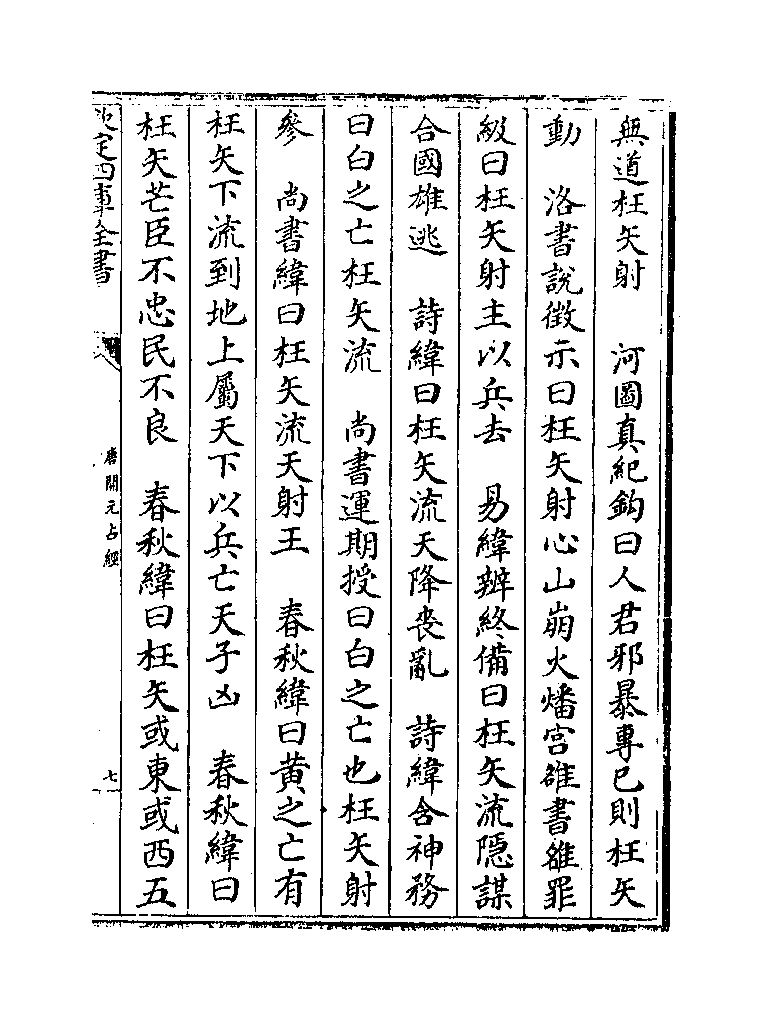 無道枉矢射　河圖真紀鈎曰人君邪暴專已則枉矢
動　洛書說徴示曰枉矢射心山崩火燔宫雒書雒罪
級曰枉矢射主以兵去　易緯辨終備曰枉矢流隠謀
合國雄逃　詩緯曰枉矢流天降喪亂　詩緯含神務
曰白之亡枉矢流　尚書運期授曰白之亡也枉矢射
參　尚書緯曰枉矢流天射王　春秋緯曰黄之亡有
枉矢下流到地上屬天下以兵亡天子凶　春秋緯曰
枉矢芒臣不忠民不良　春秋緯曰枉矢或東或西五
欽定四庫全書
唐開元占經
七